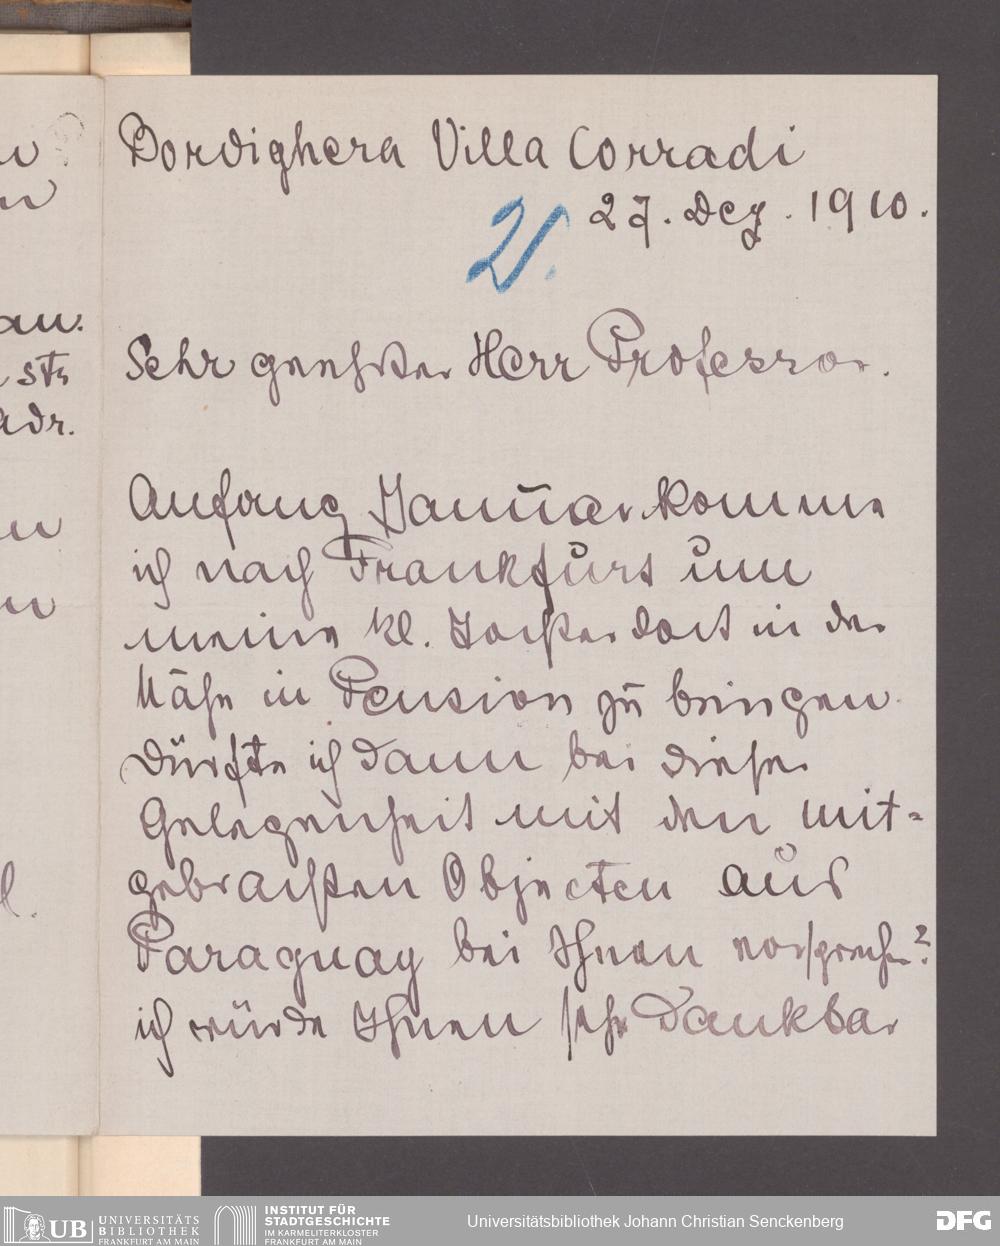 Bordighera Villa Corradi
27. Dez. 1910.
Sehr geehrter Herr Professor.
Anfang Januar komme
ich nach Frankfurt um
meine kl. Tochter dort in der
Nähe in Pension zu bringen
Dürfte ich dann bei dieser
Gelegenheit mit den mit=
gebrachten Objecten aus
Paraguay bei Ihnen vorsprechen?
ich würde Ihnen sehr dankbar
an.
str
adr.
UB UNIVERSITÄTS
BIBLIOTHEK
FRANKFURT AM MAIN
INSTITUT FÜR
STADTGESCHICHTE
IM KARMELITERKLOSTER
FRANKFURT AM MAIN
Universitätsbibliothek Johann Christian Senckenberg
DFG